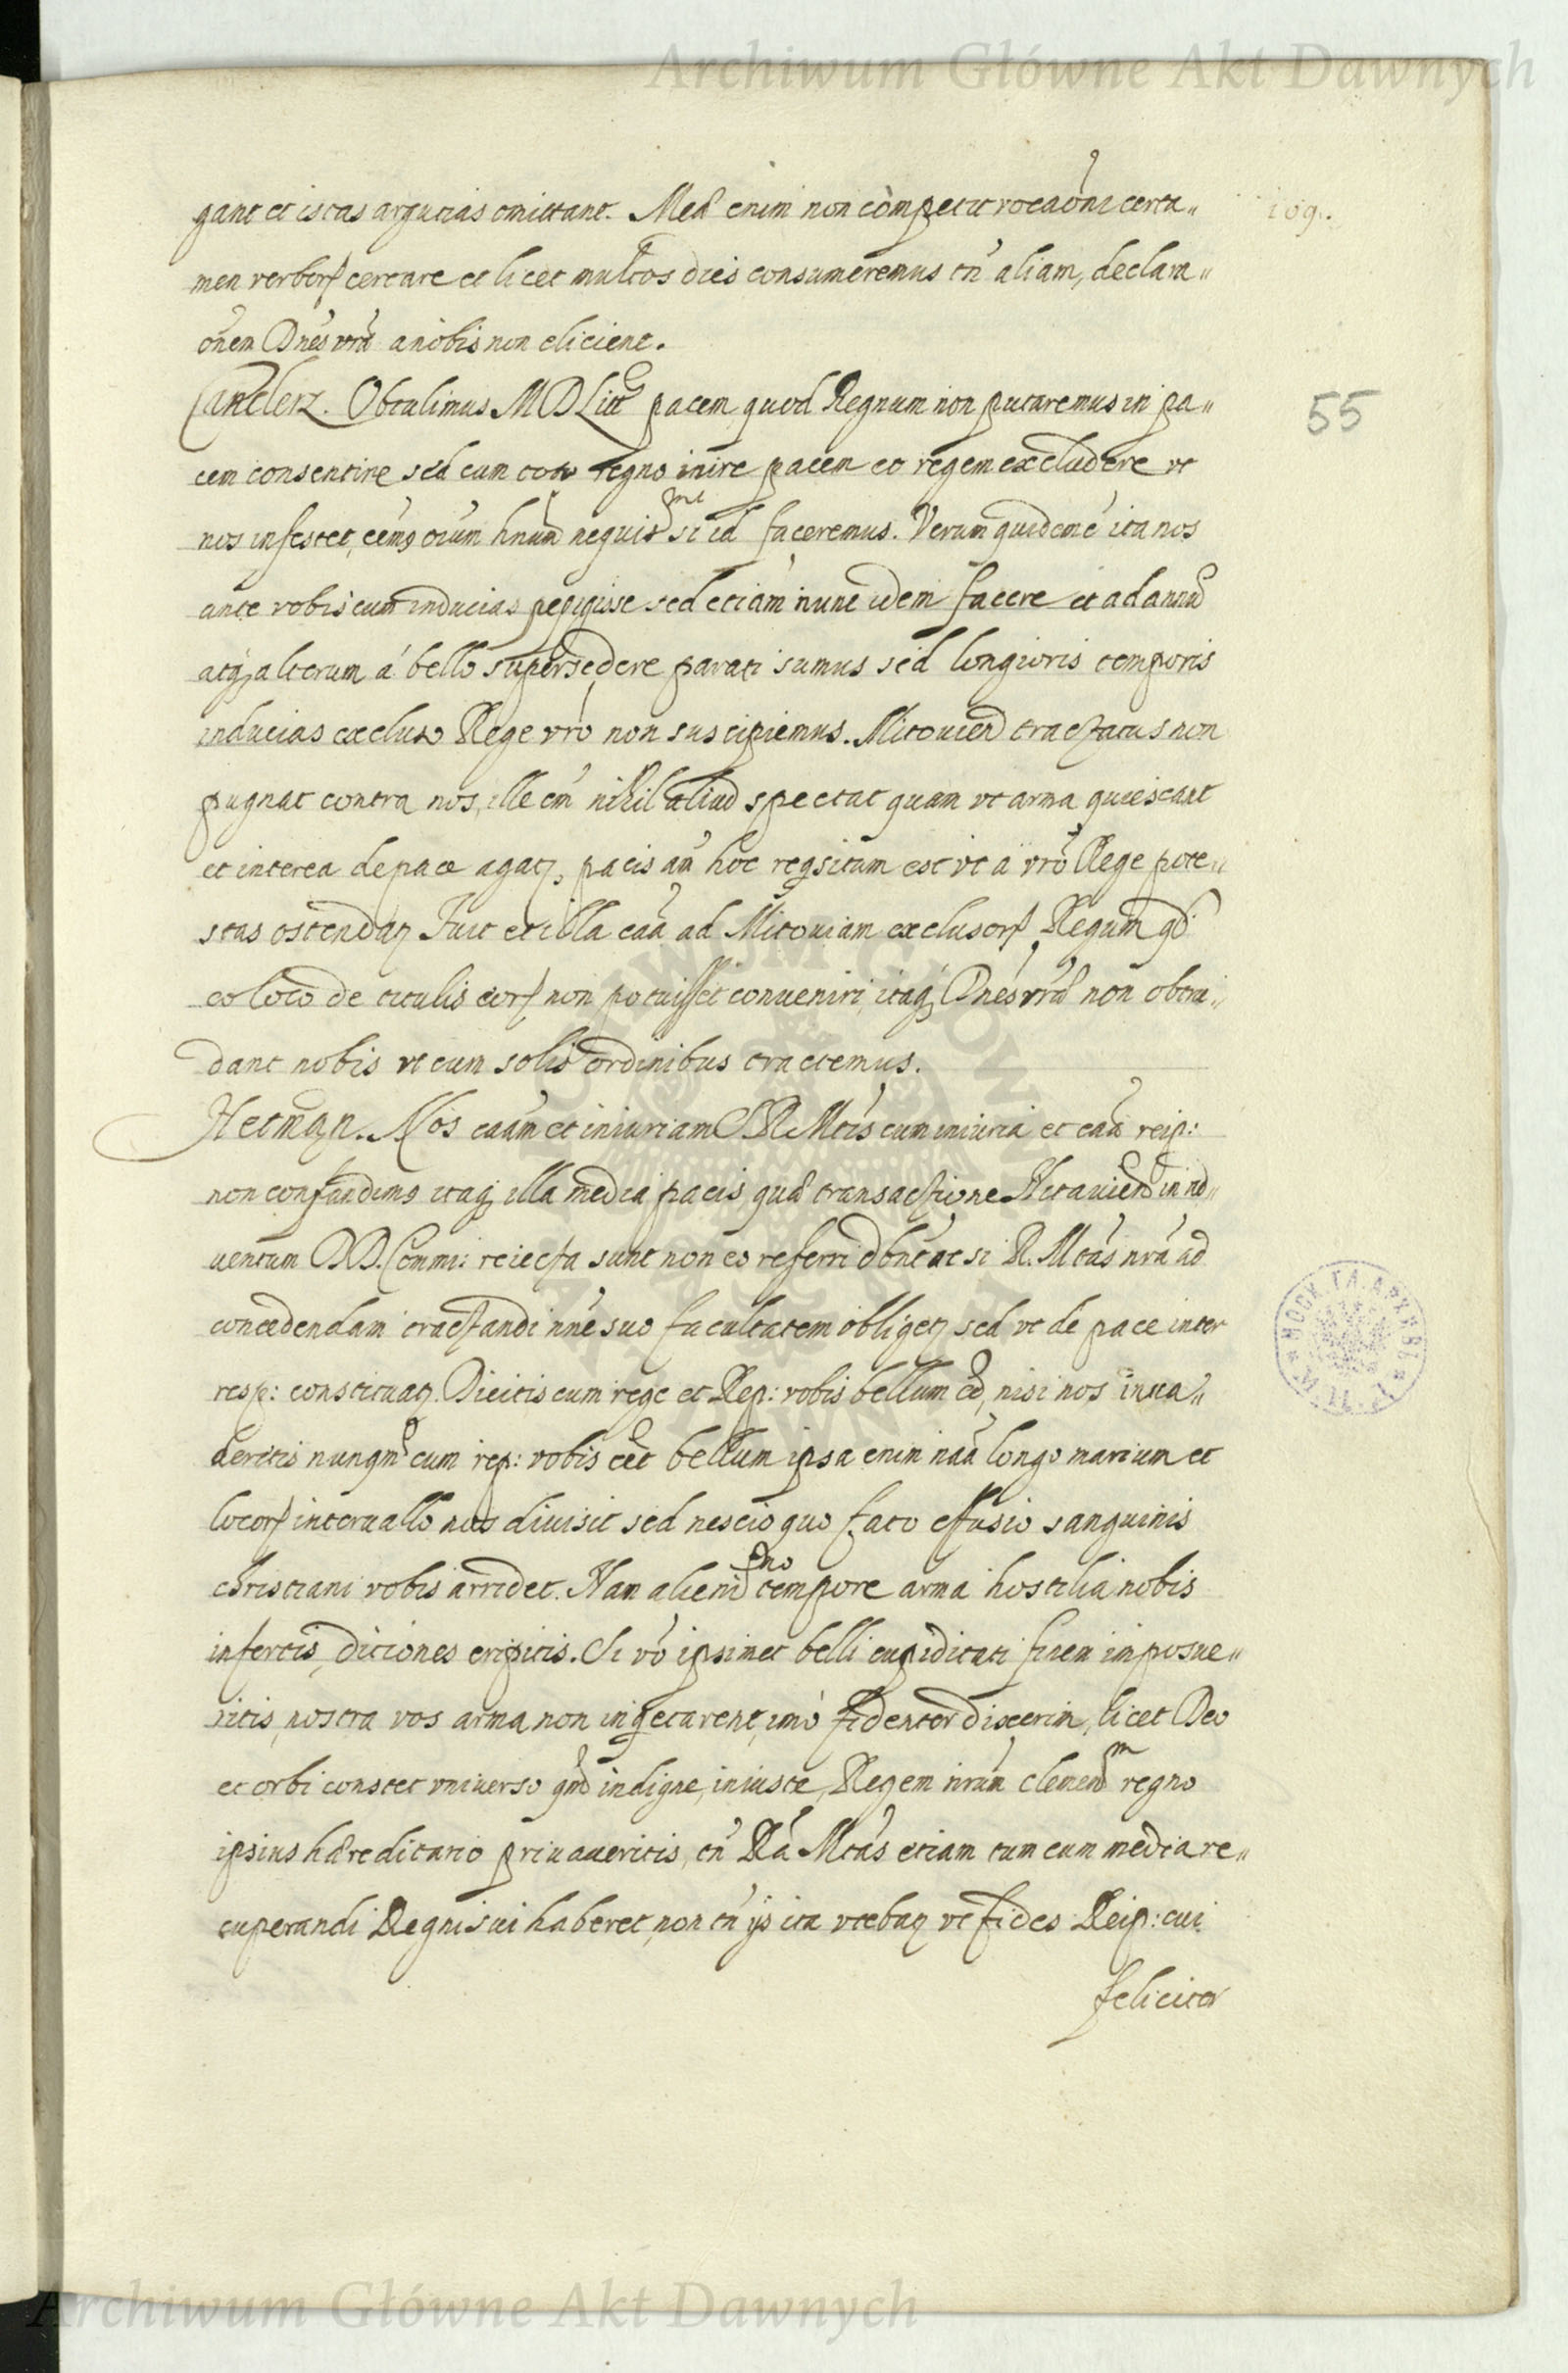 Archiwum Główne Akt Dawnych
gant et istas argutias omittant. Mea enim non competit vocaōni certa„
109.
men verborȝ certare et licet multos dies consumeremus tn̄ aliam, declara„
ōnem Dnēs vrā a nobis non elicient.
Canclerz. Obtulimus M D Litt pacem quod Regnum non putaremus in pa„
55
cem consentire sed cum toto regno inire pacem et regem excludere ut
nos infestet, eēmq oīum hnum nequis me si id faceremus. Verum quidem ē ita nos
ante vobis cum inducias pepigisse sed etiam nunc idem facere et ad annū
atq alterum á bello supersedere parati sumus sed longioris temporis
inducias excluso Rege vrō non suscipiemus. Mitouien tractatus non
pugnat contra nos, ille em̄ nihil aliud spectat quam vt arma quiescant
et interea de pace agatȝ, pacis aū hoc reqsitum est vt a vrō Rege pote„
stas ostendatȝ Fuit et illa caā ad Mitouiam exclusorȝ Regum qd
eo loco de titulis eorȝ non potuisset conueniri, itaq Dnēs vrā non obtru„
dant nobis vt cum solis ordinibus tractemus.
Hetman. Nos caām et iniuriam S R Mtis cum iniuria et caā reip:
non confundimq itaq illa media pacis, quā transactione Mitauien in ad„
uentum DD. Commi: reiecta sunt non eo referri dbnt ac si R. Mtás nrā ad
concedendam tractandi nn̄e suo facultatem obligetȝ sed vt de pace inter
resp: constituatȝ. Dicitis cum rege et Rep: vobis bellum eē, nisi nos inua„
deritis nunqm̄ cum rep: vobis eēt bellum ipsa enim naā longo marium et
locorȝ interuallo nos diuisit sed nescio quo fato effusio sanguinis
christiani vobis arridet. Nam alieniss mo tempore arma hostilia nobis
infertis, diciones eripitis. Si vō ipsimet belli cupiditati finem imposue„
ritis, nostra vos arma non infectarent, imò fidenter dixerim, licet Deo
et orbi constet vniuerso qm̄ indigne, iniuste, Regem nrūm clemen m regno
ipsius hæreditario priuaueritis, tn̄ Rā Mtás etiam tum cum media re„
cuperandi Regni sui haberet, non tn̄ ijs ita vtebatȝ vt fides Reip: cui
feliciter
Archiwum Główne Akt Dawnych